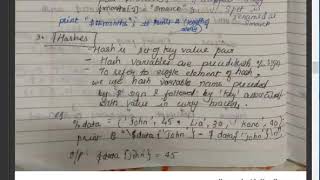 print "
is
Hashes
- Hash is set of key value pair
- Hash variables are preceded by % sign
To refer to single element of hash,
we use hash variable name preceded
by $ sign & followed by 'key' associated
with value in curly braces.
eg %data = ('John', 45, 'Lia', 30, 'Kane', 40);
print "\$data{'John'} = $data{'John'}\n";
o/p $data{John} = 45